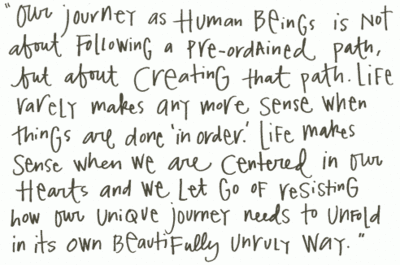 "Our journey as Human Beings is Not
about Following a pre-ordained path,
but about Creating that path. Life
rarely makes any more sense when
things are done 'in order.' Life makes
Sense when we are Centered in our
Hearts and we Let Go of resisting
how our unique journey needs to unfold
in its own Beautifully unruly way."